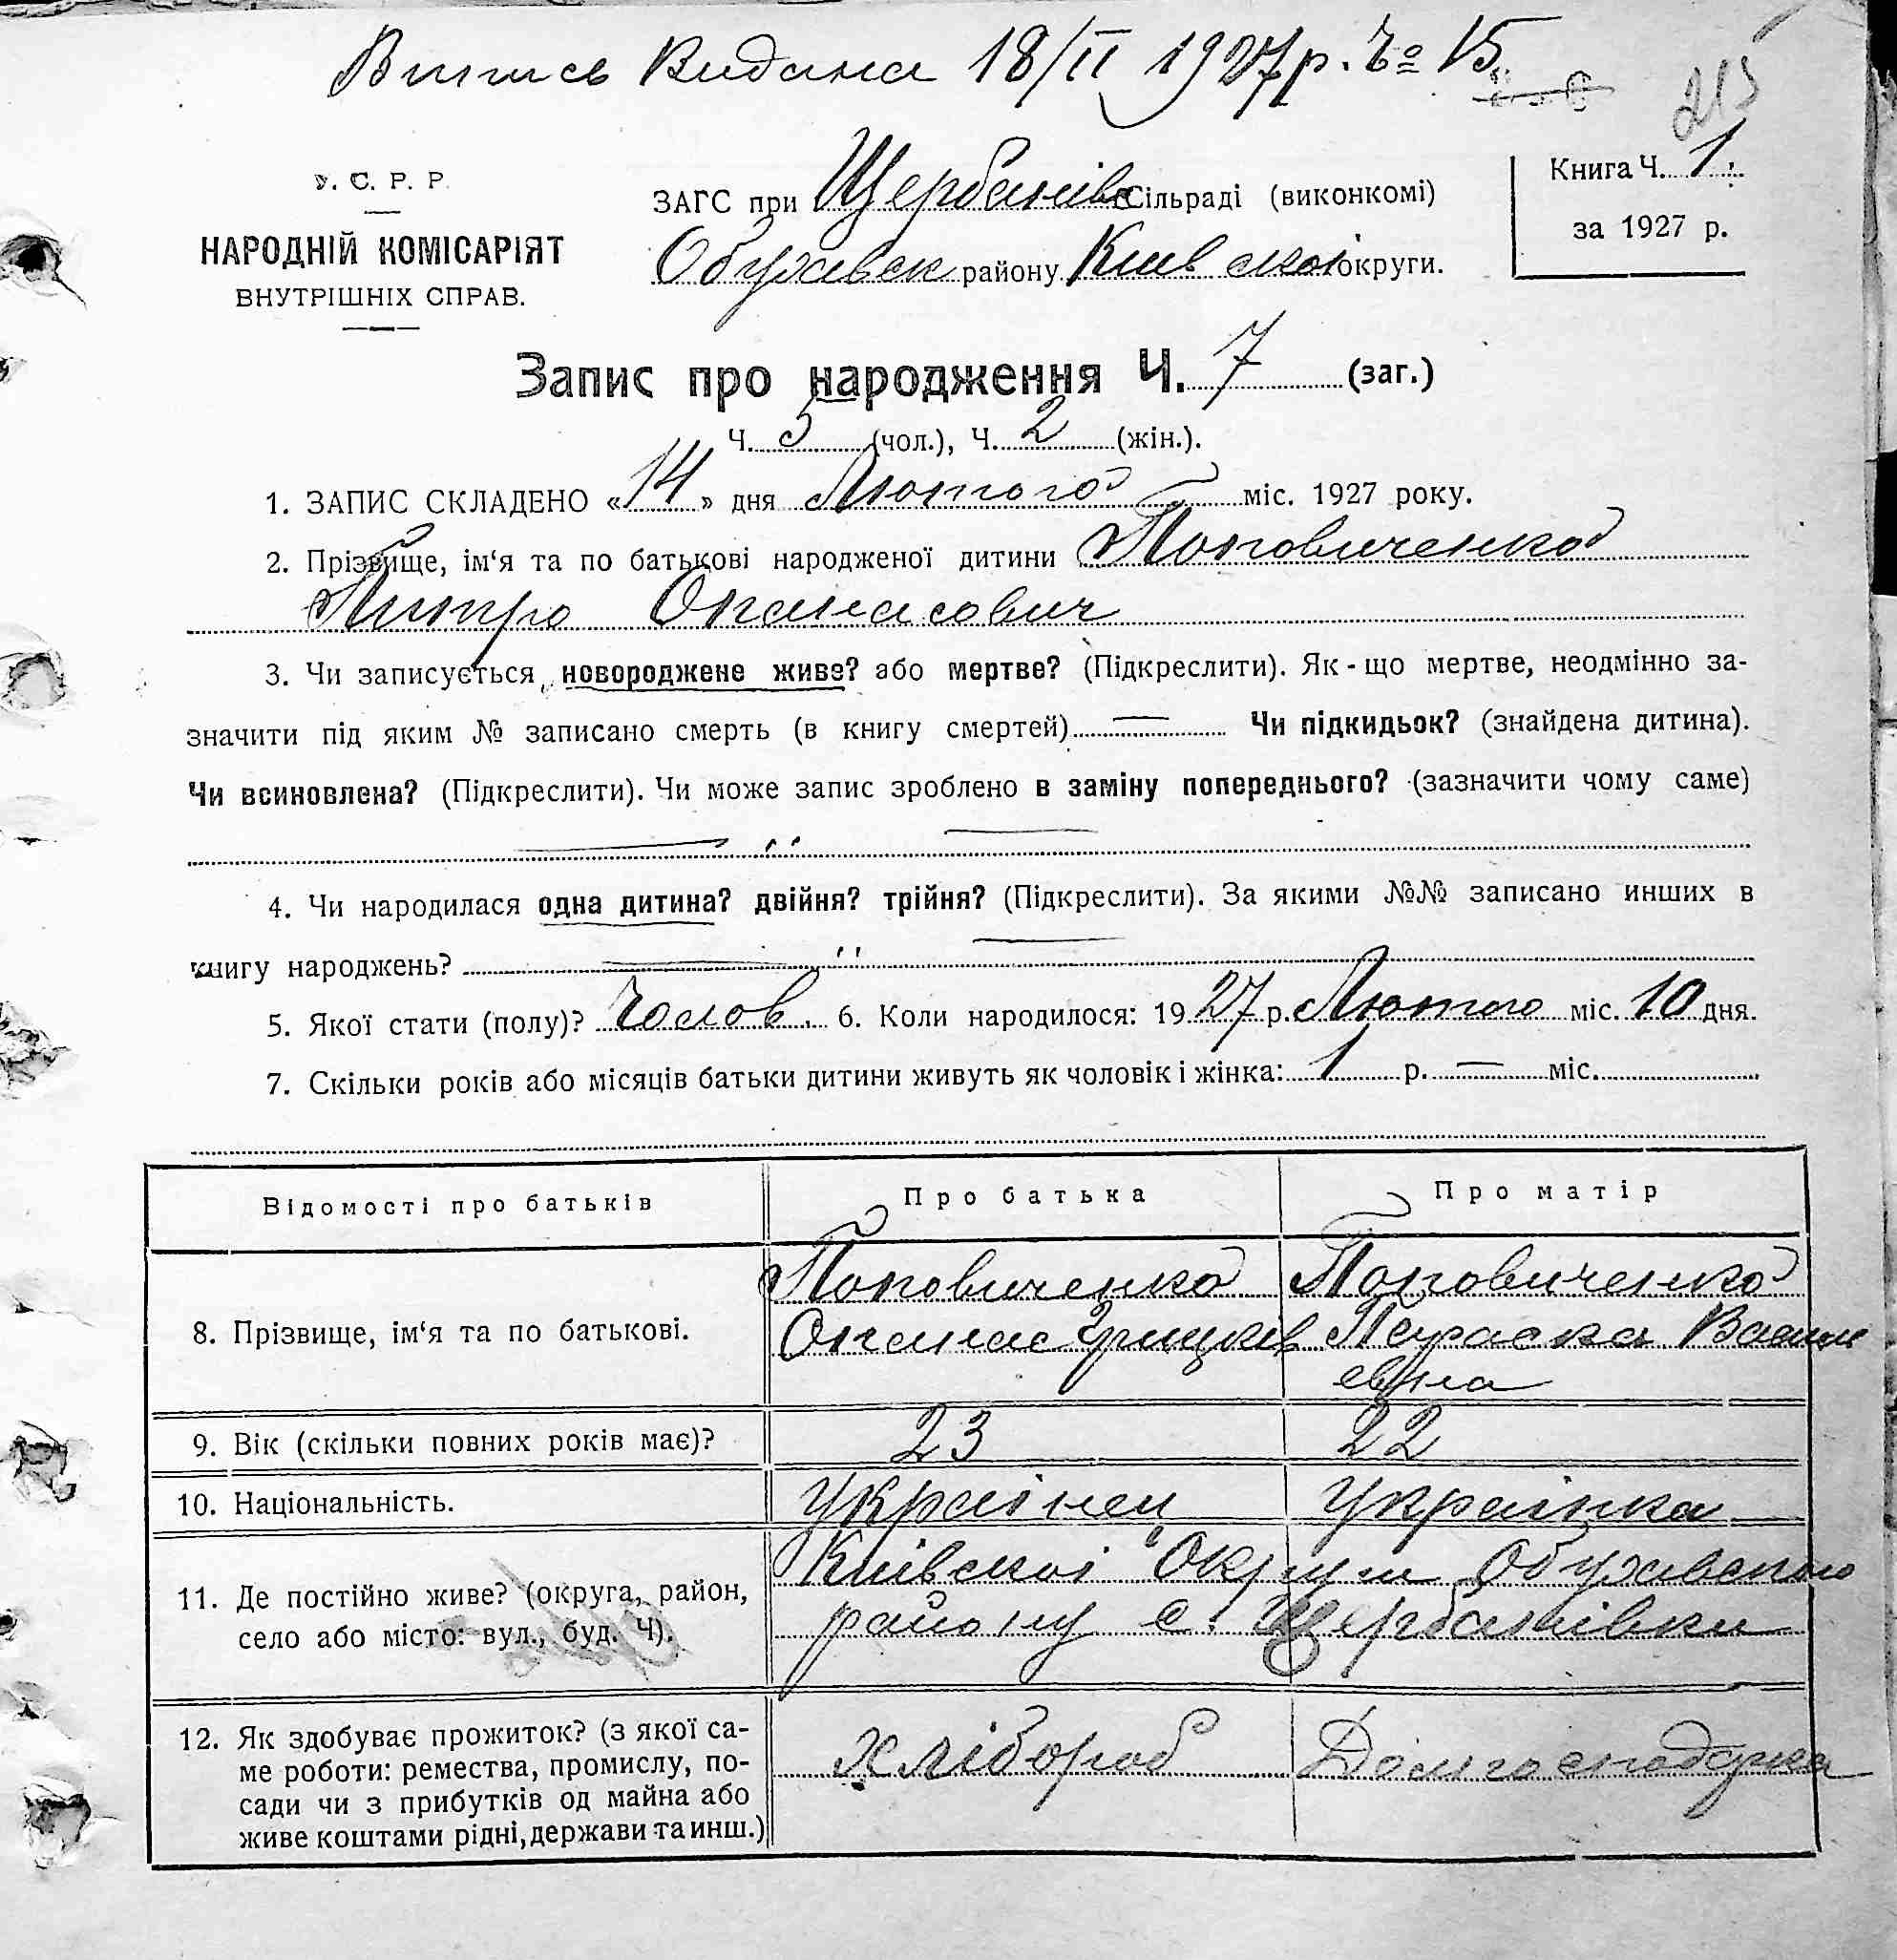 Випись Видана 18/II 1927 р. Чо 15.
215
У. С. Р. Р.
НАРОДНІЙ КОМІСАРІЯТ
ВНУТРІШНІХ СПРАВ.
ЗАГС при Щербанівс Сільраді (виконкомі)
Обухівськ району Київської округи.
Книга Ч. 1.
за 1927 р.
Запис про народження Ч. 7 (заг.)
Ч. 5 (чол.), Ч. 2 (жін.).
1. ЗАПИС СКЛАДЕНО «14» дня Лютого міс. 1927 року.
2. Прізвище, ім'я та по батькові народженої дитини Поповиченко
Митро Опанасович
3. Чи записується новороджене живе? або мертве? (Підкреслити). Як-що мертве, неодмінно за-
значити під яким № записано смерть (в книгу смертей) — Чи підкидьок? (знайдена дитина).
Чи всиновлена? (Підкреслити). Чи може запис зроблено в заміну попереднього? (зазначити чому саме)
— " —
4. Чи народилася одна дитина? двійня? трійня? (Підкреслити). За якими №№ записано инших в
книгу народжень? — " —
5. Якої стати (полу)? Чолов. 6. Коли народилося: 1927 р. Лютого міс. 10 дня.
7. Скільки років або місяців батьки дитини живуть як чоловік і жінка: 1 р. — міс.
Відомості про батьків Про батька Про матір
8. Прізвище, ім'я та по батькові. Поповиченко Поповиченко
Опанас Грицьків Параска Васил
евна
9. Вік (скільки повних років має)? 23 22
10. Національність. Українец Українка
11. Де постійно живе? (округа, район,
село або місто: вул., буд. Ч).
Київскої Округи Обухівського
району с. Щербанівки
12. Як здобуває прожиток? (з якої са-
ме роботи: ремества, промислу, по-
сади чи з прибутків од майна або
живе коштами рідні, держави та инш.)
хлібороб Домгосподарка